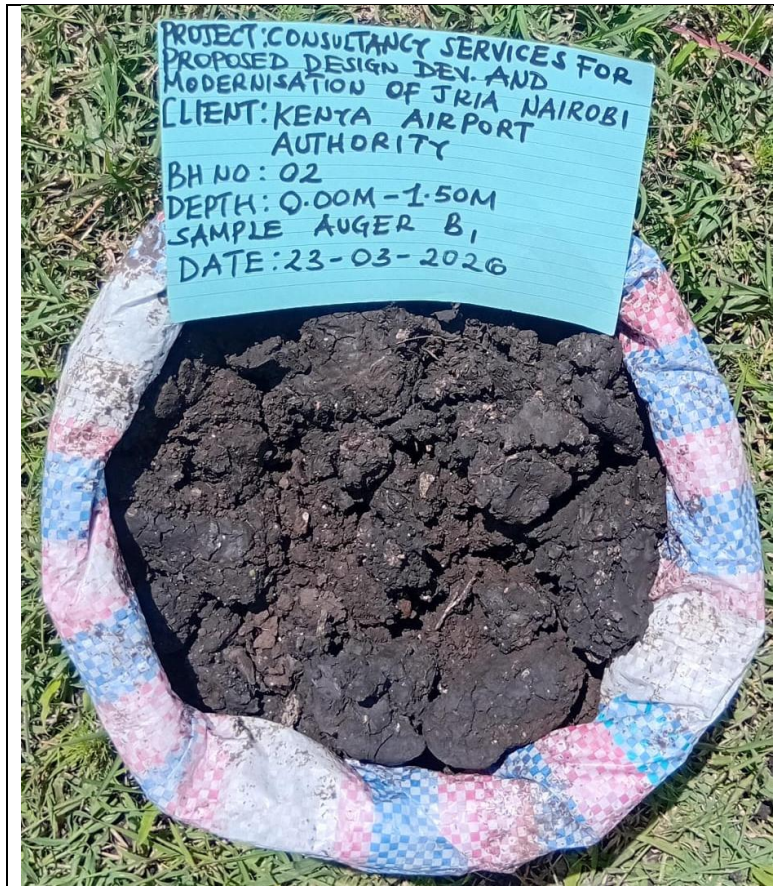 PROJECT: CONSULTANCY SERVICES FOR
PROPOSED DESIGN DEV. AND
MODERNISATION OF JKIA NAIROBI
CLIENT: KENYA AIRPORT
AUTHORITY
BH NO: 02
DEPTH: 0.00M-1.50M
SAMPLE AUGER B1
DATE: 23-03-2026